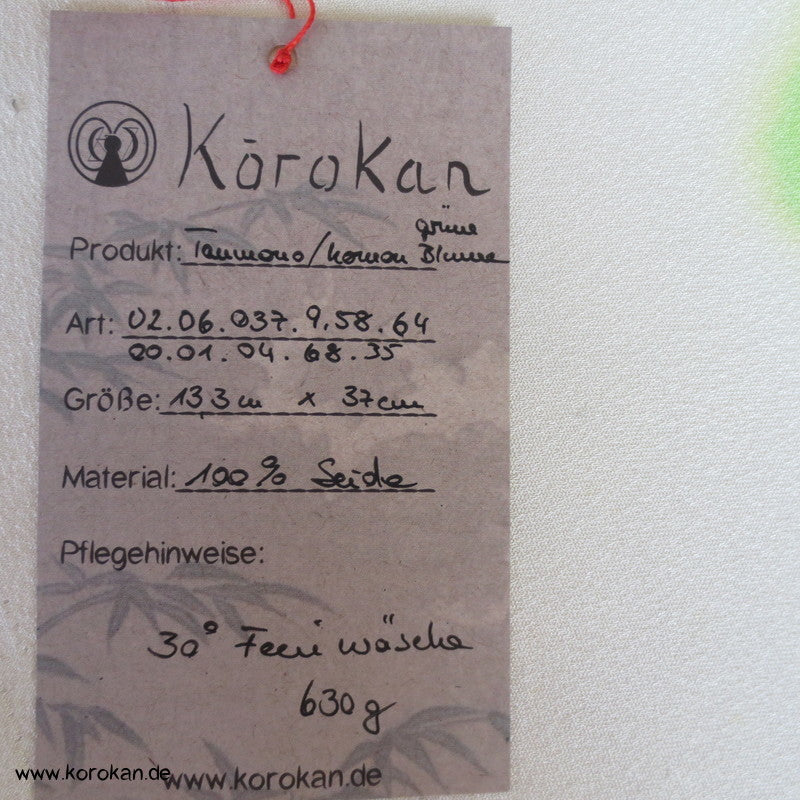 Kōrokan
grüne
Produkt: Tanmono/Komon Blume
Art: 02.06.037.9.58.64
00.01.04.68.35
Größe: 13 3 m x 37cm
Material: 100% Seide
Pflegehinweise:
30° Feinwäsche
630g
www.korokan.de
www.korokan.de